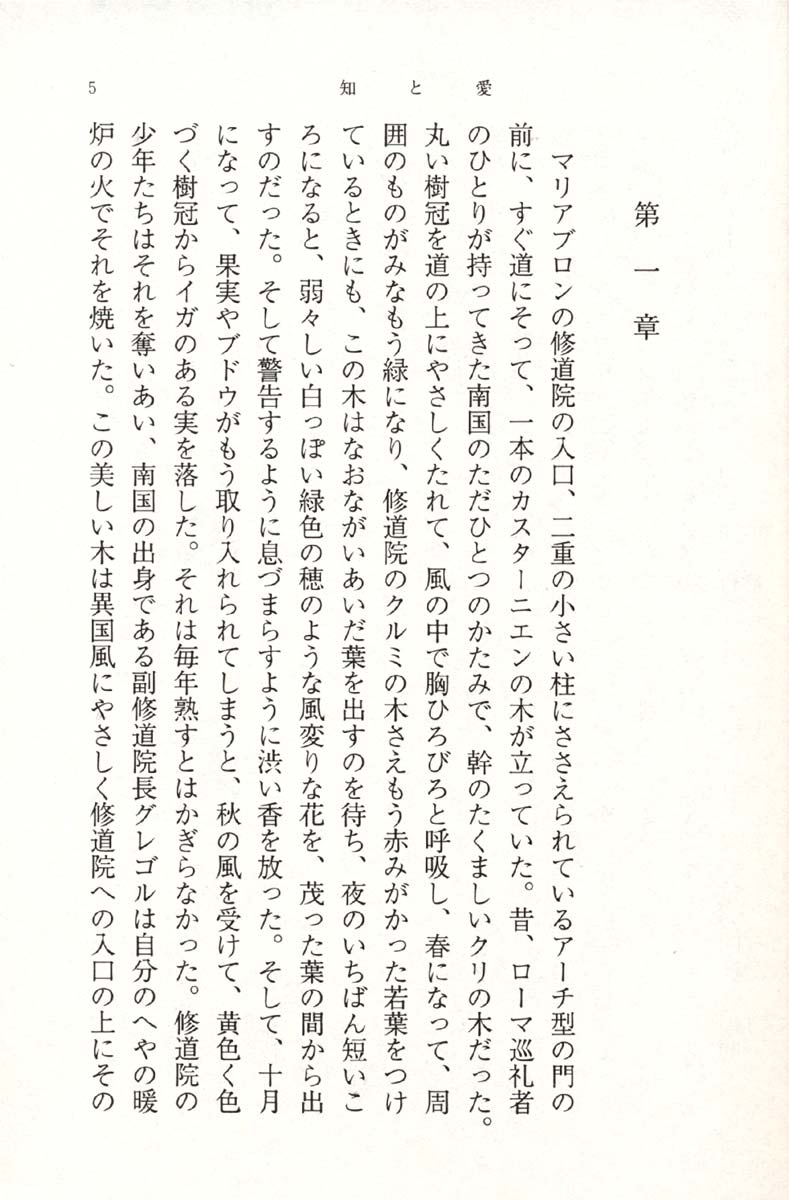 知と愛
5
第一章
マリアブロンの修道院の入口、二重の小さい柱にささえられているアーチ型の門の
前に、すぐ道にそって、一本のカスターニエンの木が立っていた。昔、ローマ巡礼者
のひとりが持ってきた南国のただひとつのかたみで、幹のたくましいクリの木だった。
丸い樹冠を道の上にやさしくたれて、風の中で胸ひろびろと呼吸し、春になって、周
囲のものがみなもう緑になり、修道院のクルミの木さえもう赤みがかった若葉をつけ
ているときにも、この木はなおながいあいだ葉を出すのを待ち、夜のいちばん短いこ
ろになると、弱々しい白っぽい緑色の穂のような風変りな花を、茂った葉の間から出
すのだった。そして警告するように息づまらすように渋い香を放った。そして、十月
になって、果実やブドウがもう取り入れられてしまうと、秋の風を受けて、黄色く色
づく樹冠からイガのある実を落した。それは毎年熟すとはかぎらなかった。修道院の
少年たちはそれを奪いあい、南国の出身である副修道院長グレゴルは自分のへやの暖
炉の火でそれを焼いた。この美しい木は異国風にやさしく修道院への入口の上にその